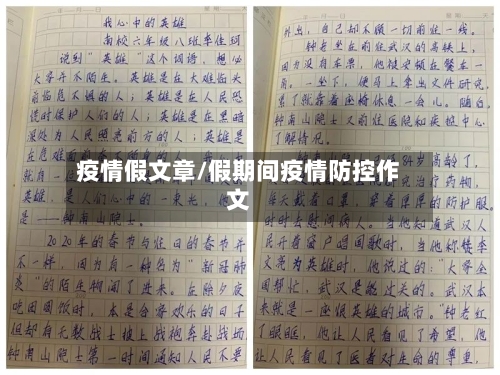 我心中的英雄
南校六年级八班李佳珂
说到“英雄”这个词语，想必
大家并不陌生。英雄是在大难临头
前临危不惧的人；英雄是在人民恐
慌时保护人们的人；英雄是在黑暗
深处为人民照亮前方的人；英雄是
在危难面前
就自
英雄，是人们心中的一束光，他
是——钟南山院士。
2020年的春节与往日的春节并
不一样，因为有一种名为“新冠肺
炎”的陌生物闯了进来。在除夕夜
吃团圆饭时，本是合家欢乐的日子
但却有无数战士披上战袍奔赴战场
钟南山院士第一时间通知人民不要
外出，自己却不顾一切前往一线。
钟老坐在前往武汉的高铁上，
因为没有车票，他被安顿在餐车一
角。一坐下，便马上拿出文件研究，
累了就靠着座椅休息一会儿。随后，
钟南山院士又前往医院和疾控中心
了解情况。
84岁高龄了，
究治疗药物，
每天戴着口罩，穿着厚厚的防护服，
时时去慰问病人。当他知道武汉人
民开着窗户唱国歌时，当他称赞李
文亮为英雄时，他说过的：“大家全
国帮忙，武汉是能过关的。武汉本
来就是一座很英雄的城市。”钟老红
了眼眶，他让人民看见了希望，他
让人民看见了医者对生命的尊重，
疫情假文章/假期间疫情防控作
文